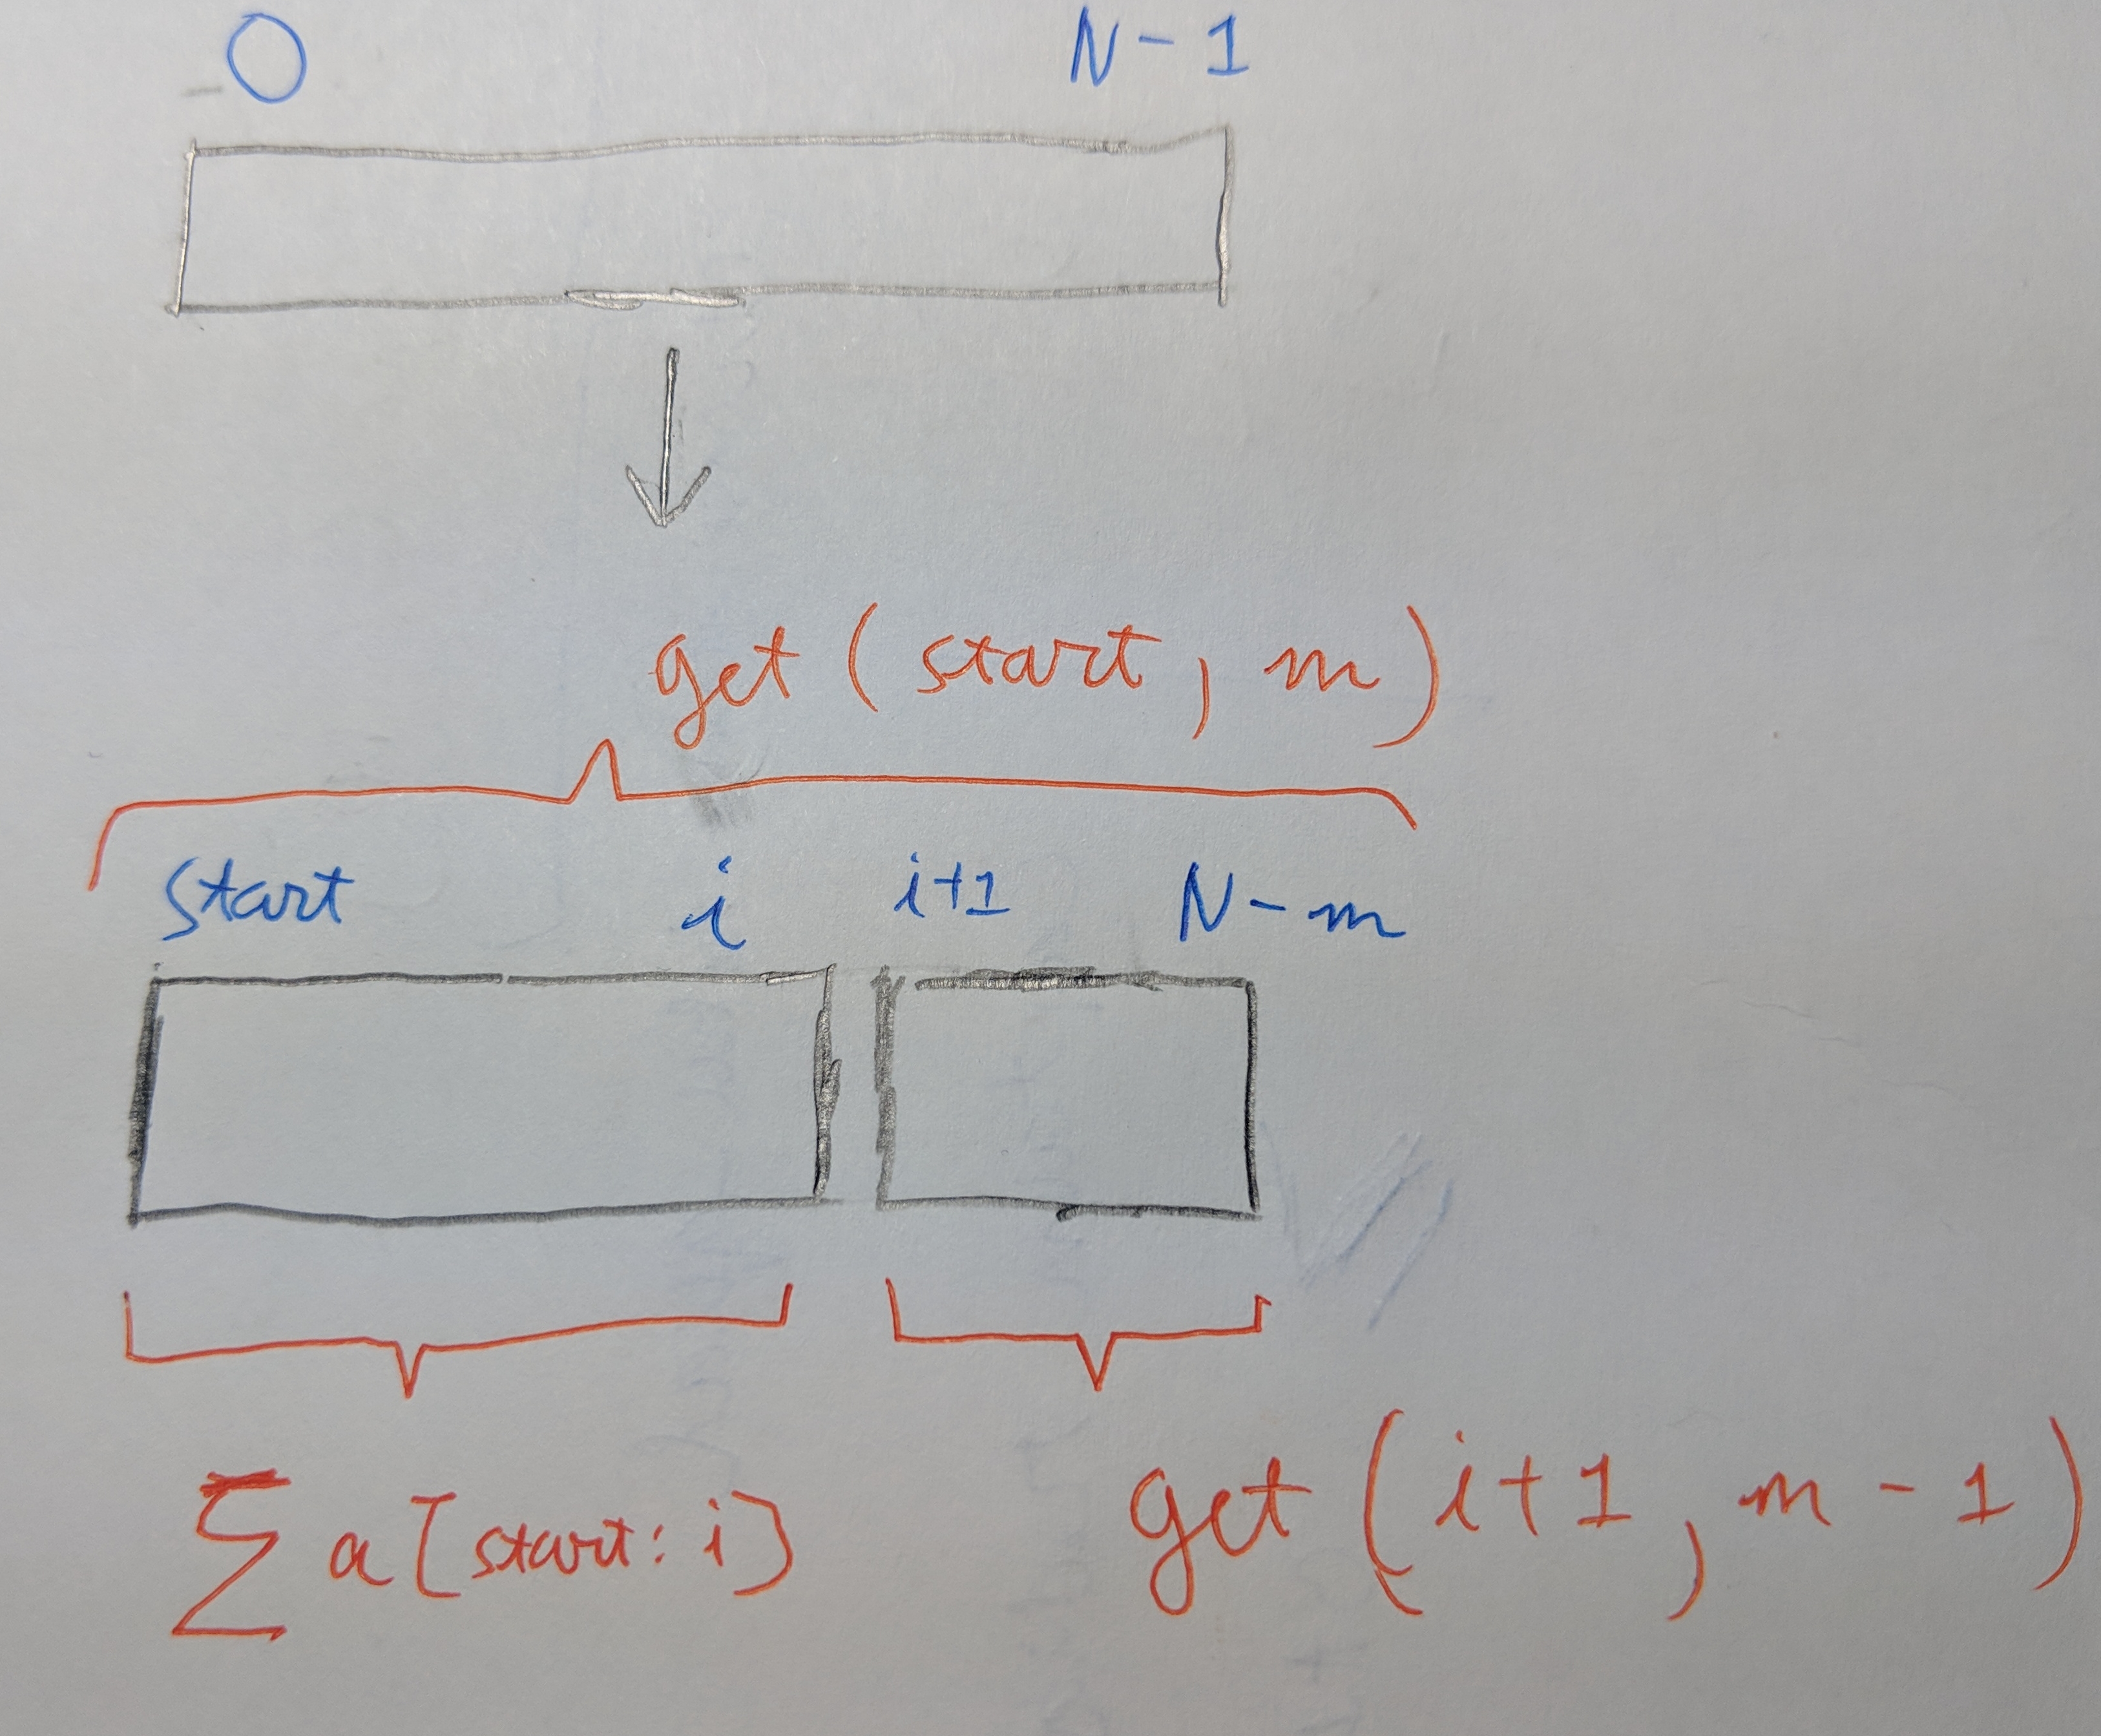 0 N-1
get(start, m)
start i i+1 N-m
∑ a[start:i] get(i+1, m-1)